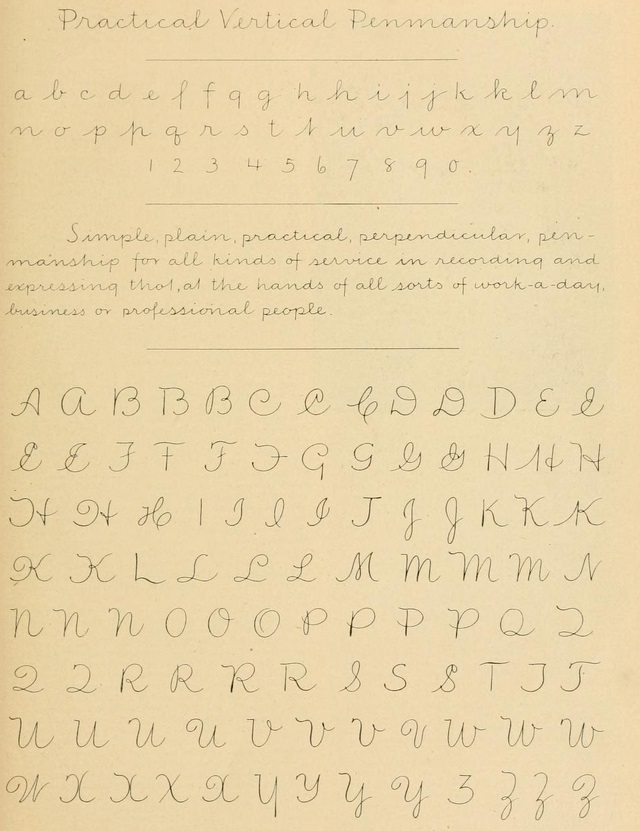 Practical Vertical Penmanship.
a b c d e f f q g h h i j j k k l m
n o p p q r s t t u v w x y z z
1 2 3 4 5 6 7 8 9 0.
Simple, plain, practical, perpendicular, pen-
manship for all kinds of service in recording and
expressing thot, at the hands of all sorts of work-a-day,
business or professional people.
A A B B B C C C D D D E E
E E F F F F G G G G H H H
H H H I I I I J J J K K K
K K L L L L M M M M N
N N N O O O P P P P Q Q
Q Q R R R R S S S T T T
U U U U V V V V W W W
W X X X X Y Y Y Y Z Z Z Z